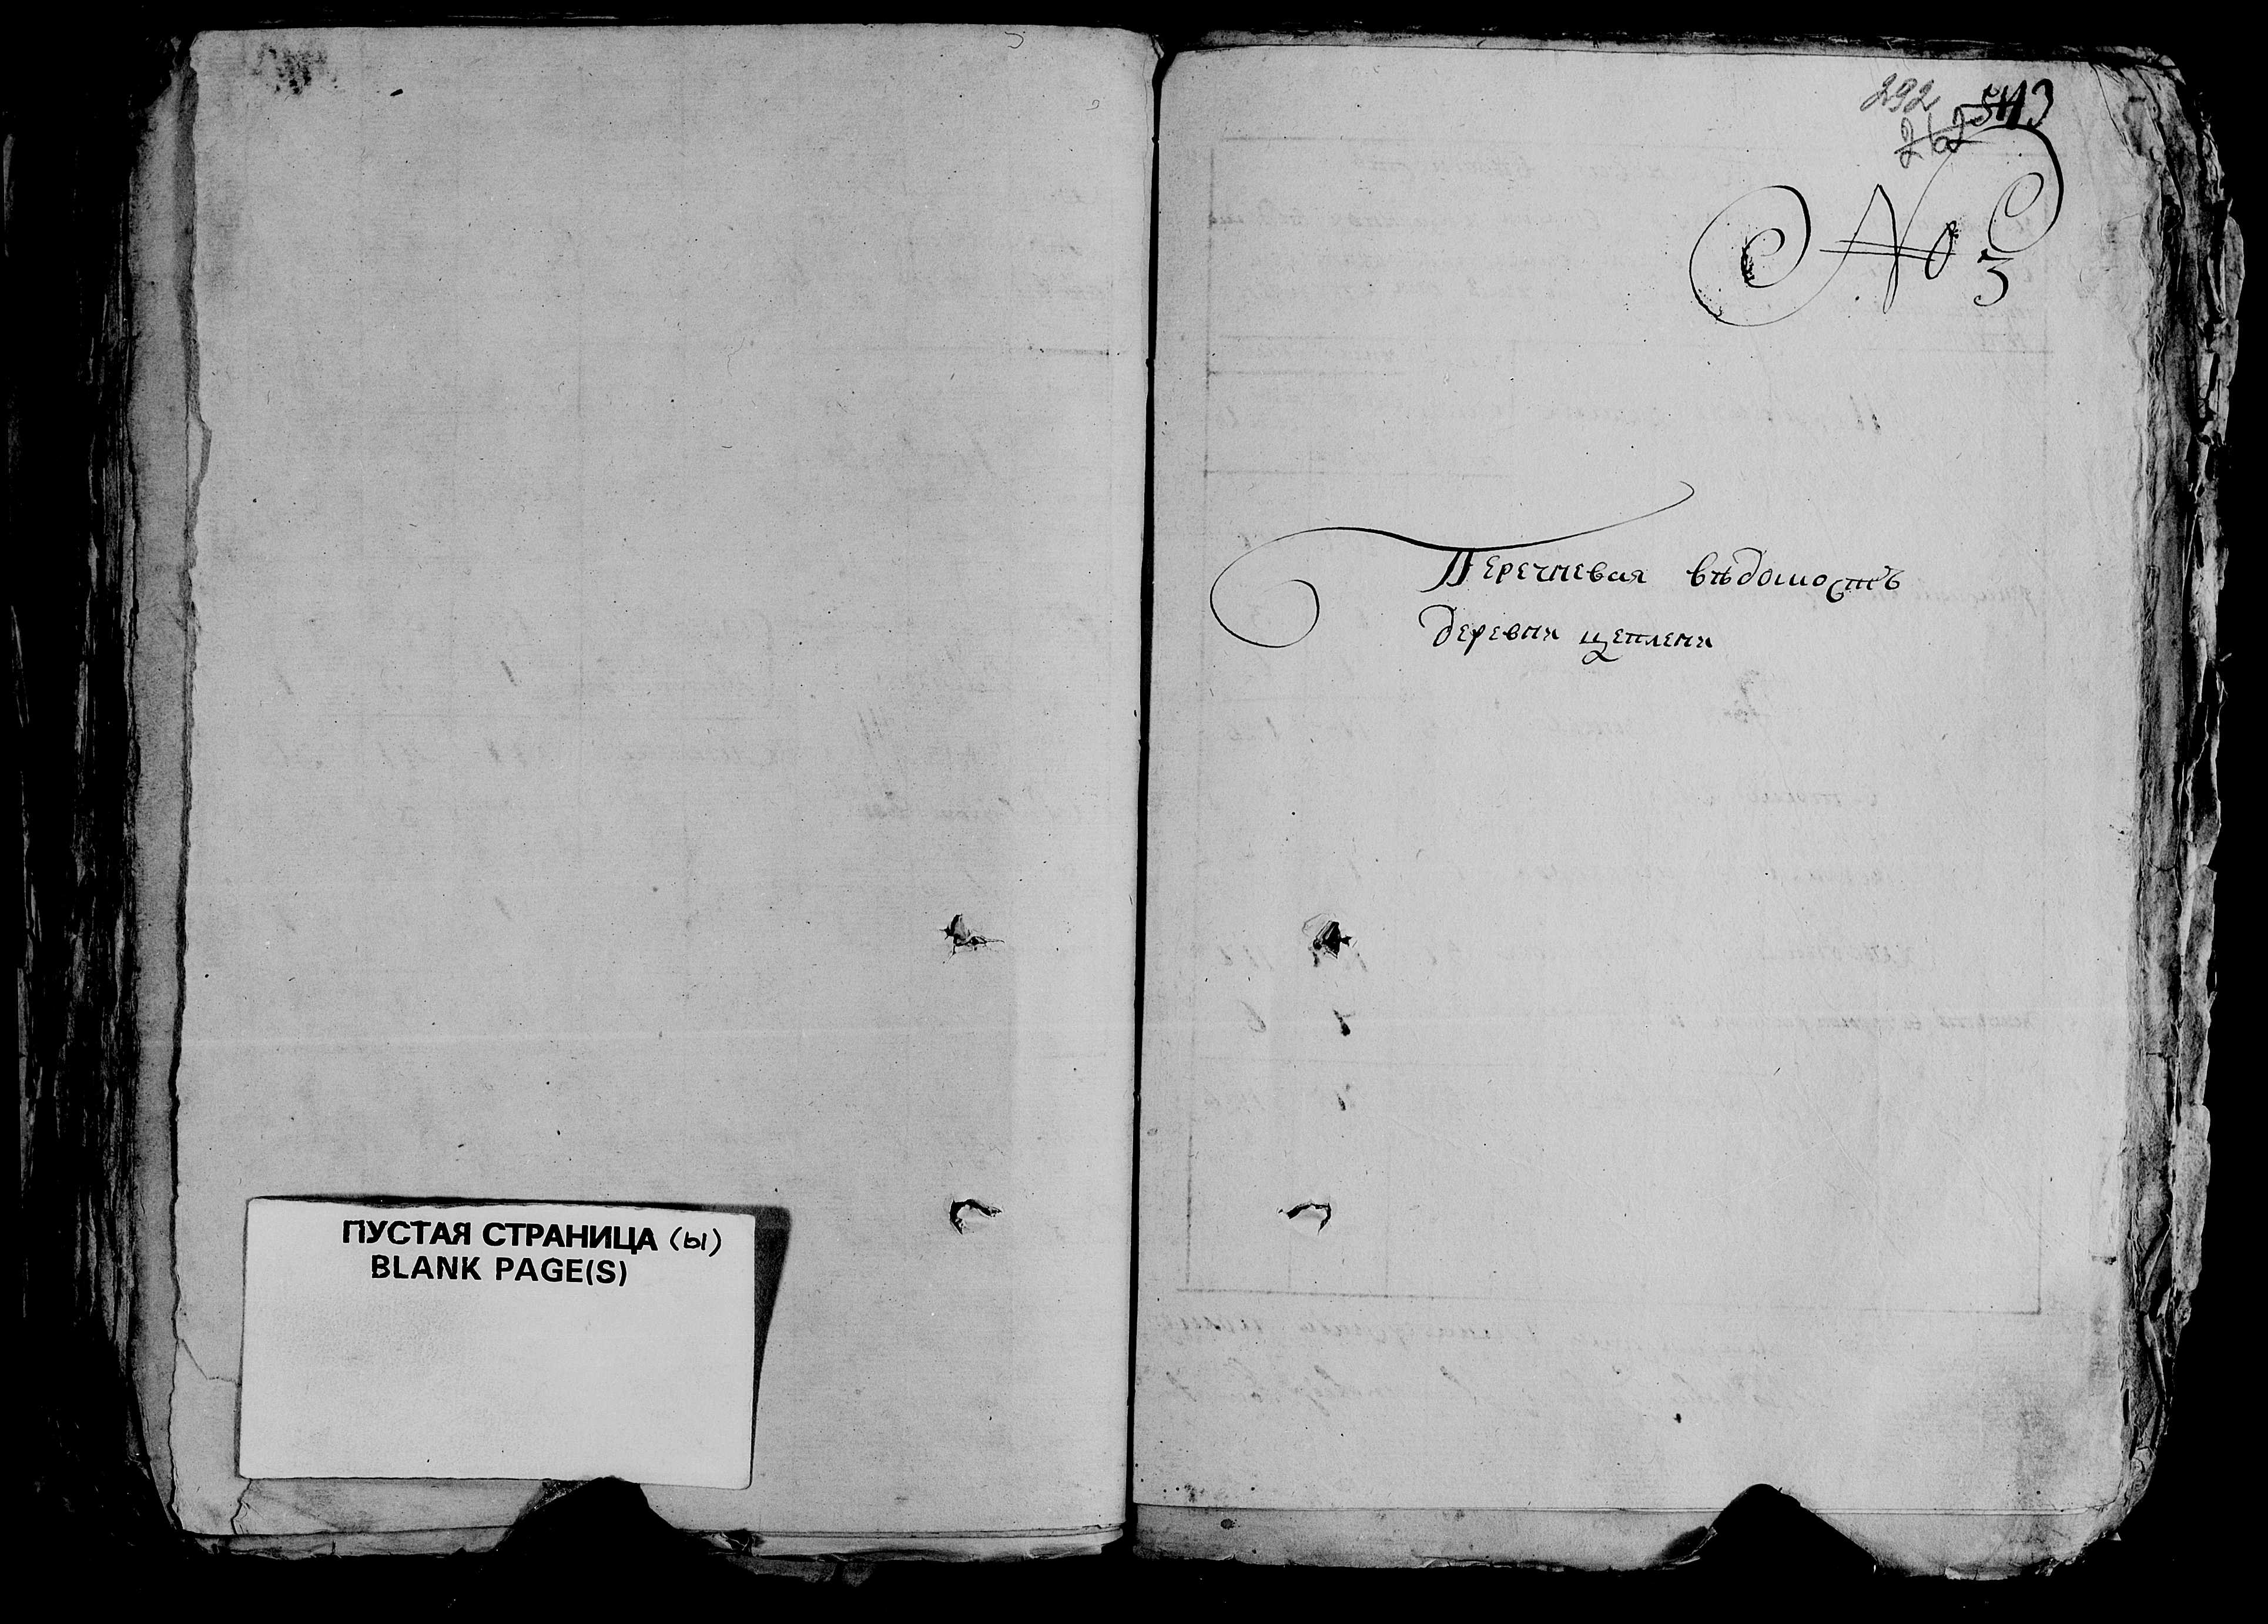 ПУСТАЯ СТРАНИЦА (ы)
BLANK PAGE(S)
292
262
No 3
Перечневая вѣдомость
деревни щеплени